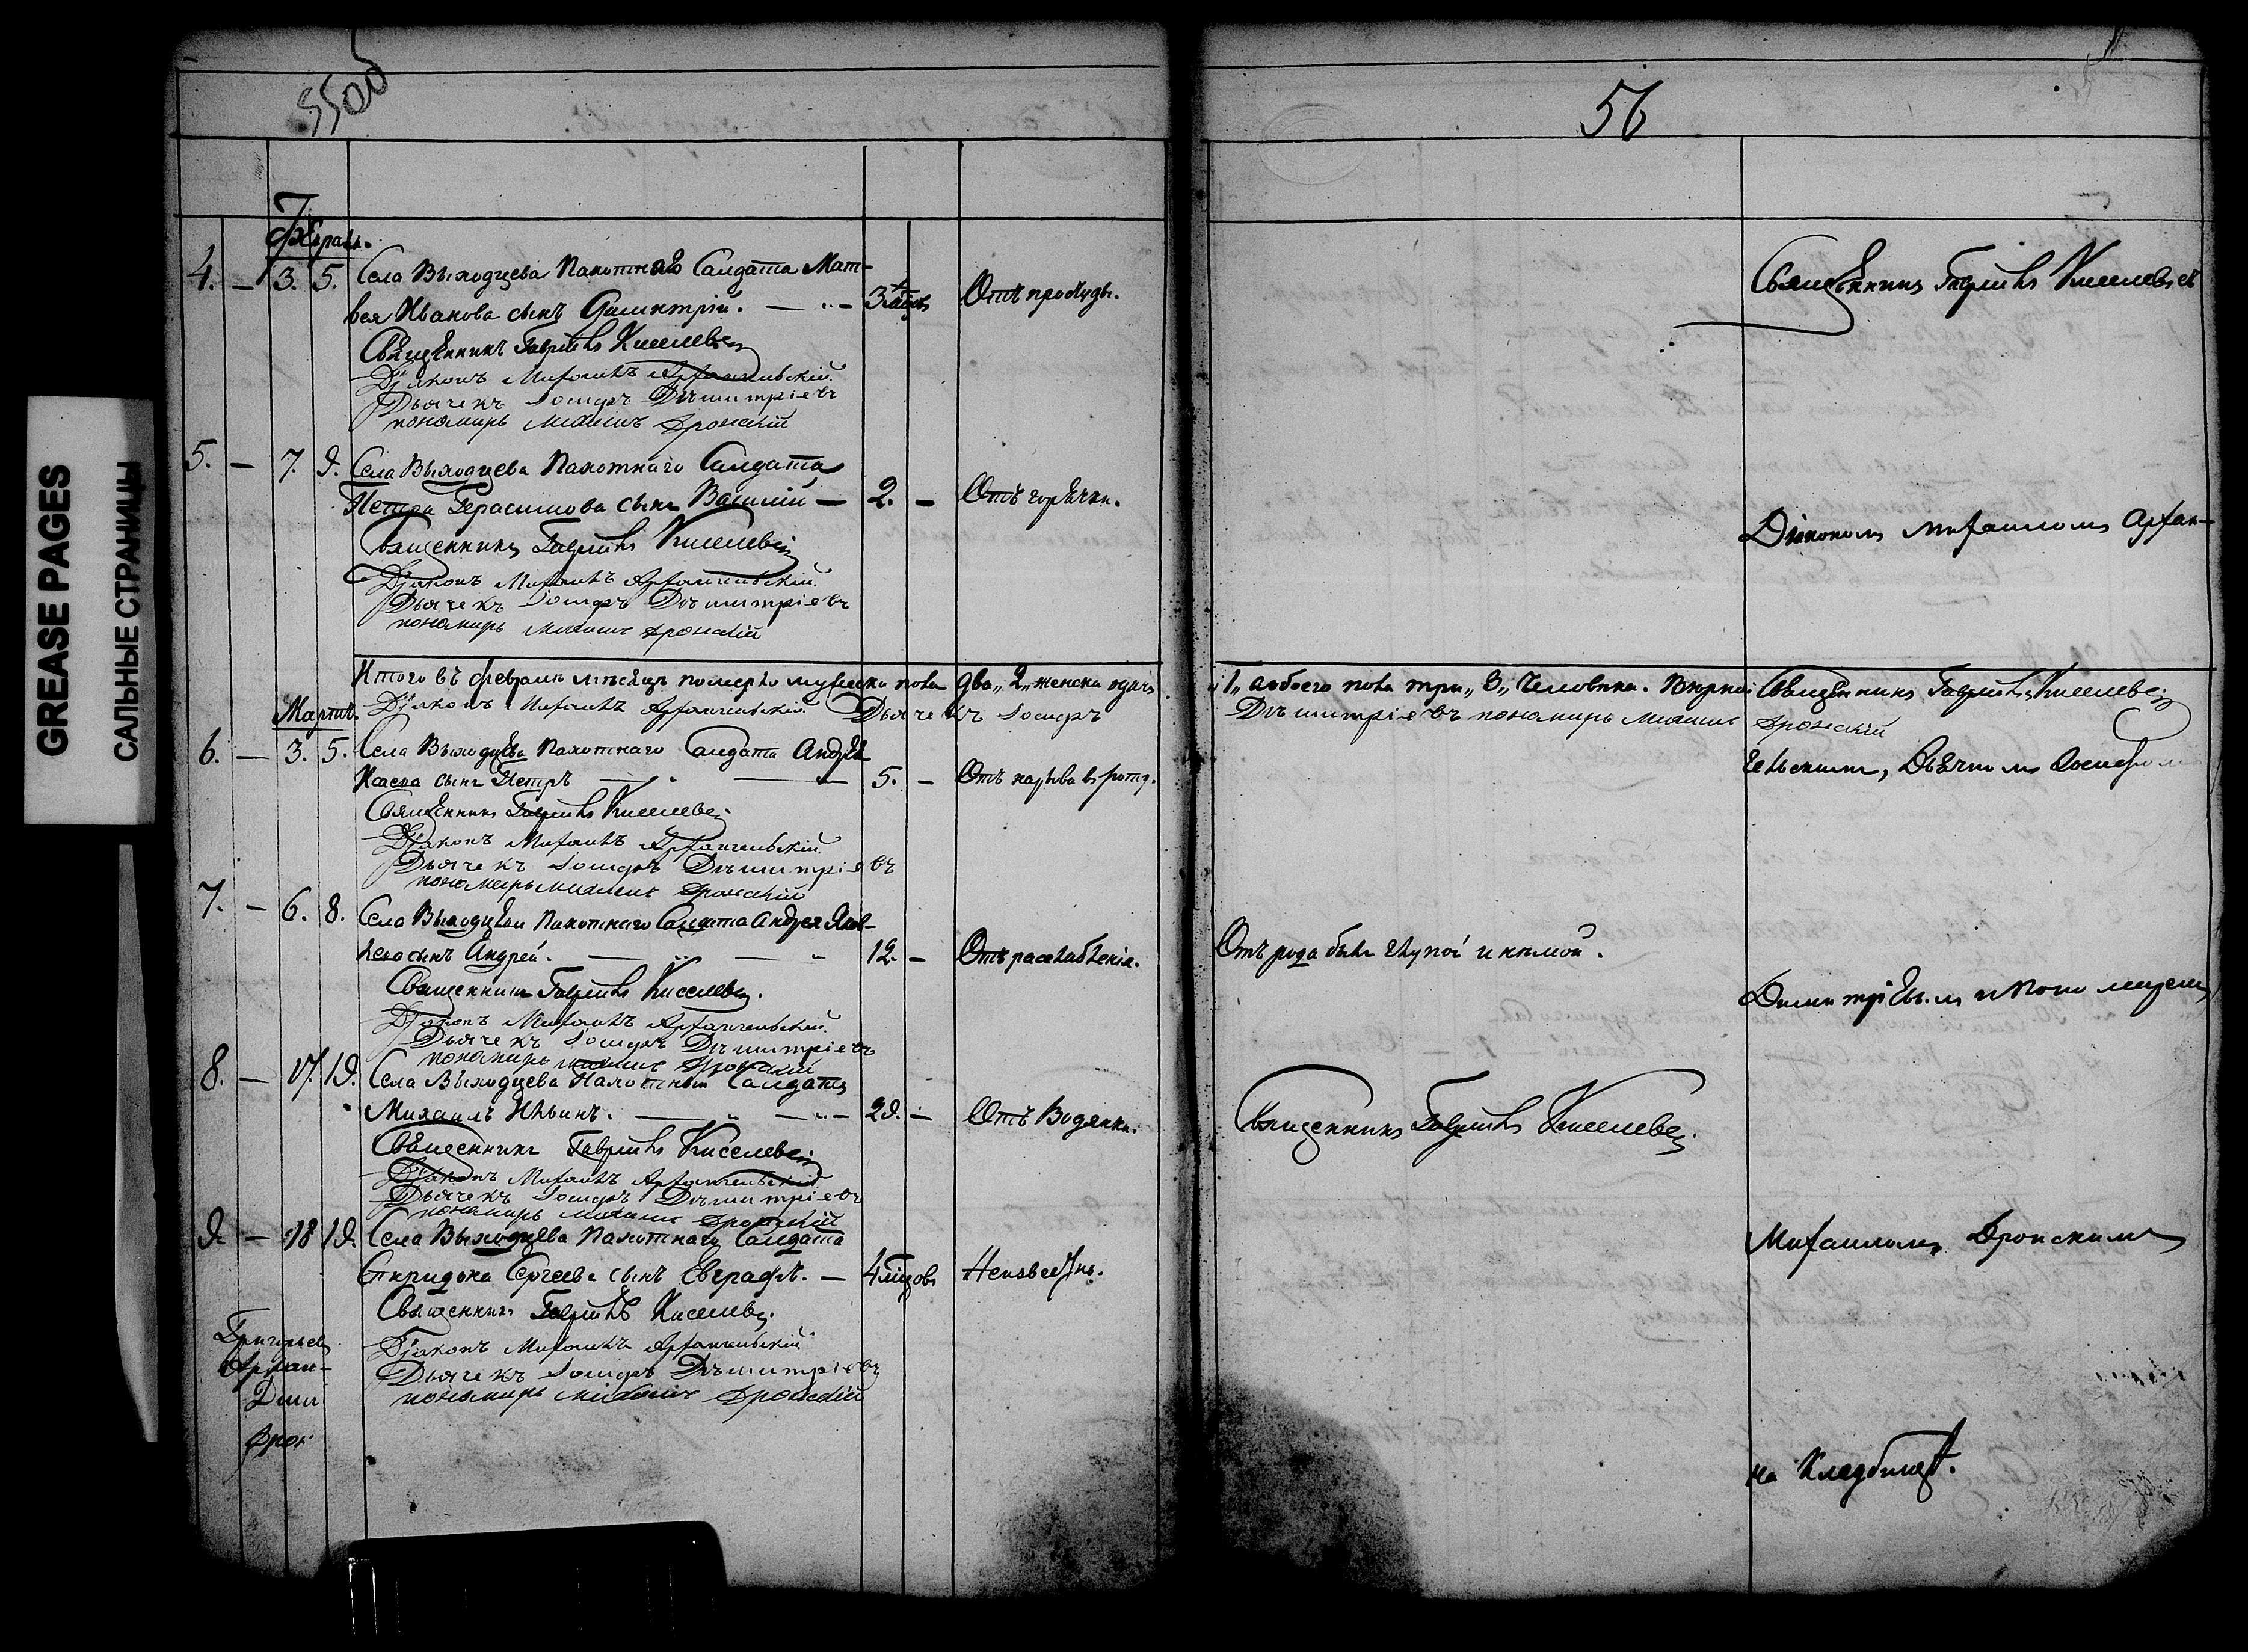 GREASE PAGES
САЛЬНЫЕ СТРАНИЦЫ
55об
56
Февраль.
4. — 3. 5. Села Выходцева Пахотнаго Салдата Мат-
вея Иванова сынъ Димитрій. — 3 Отъ простуды.
Священникъ Гавриилъ Киселевъ
Діаконъ Михаилъ Архангельскій.
Дьячекъ Іосифъ Дъмитріевъ
пономарь Михаилъ Дронскій
5. — 7. 9. Села Выходцева Пахотнаго Салдата
Петра Герасимова сынъ Василій — 2. — Отъ горячки.
Священникъ Гавриилъ Киселевъ
Діаконъ Михаилъ Архангельскій.
Дьячекъ Іосифъ Дъмитріевъ
пономарь Михаилъ Дронскій
Итого въ февралѣ мѣсяцѣ померло мужеска пола два „2„ женска одна
Діаконъ Михаилъ Архангельскій Дьячекъ Іосифъ
Мартъ.
6. — 3. 5. Села Выходцева Пахотнаго Салдата Андрея
сынъ Петръ — 5. — Отъ нарыва въ ротѣ.
Священникъ Гавриилъ Киселевъ
Діаконъ Михаилъ Архангельскій.
Дьячекъ Іосифъ Дъмитріевъ
пономарь Михаилъ Дронскій
7. — 6. 8. Села Выходцева Пахотнаго Салдата Андрея Яков-
лева сынъ Андрей. — 12. — Отъ разслабленія.
Священникъ Гавриилъ Киселевъ.
Діаконъ Михаилъ Архангельскій.
Дьячекъ Іосифъ Дъмитріевъ
пономарь Михаилъ Дронскій
8. — 17. 19. Села Выходцева Пахотный Салдатъ
Михаилъ Ильинъ. — 29. — Отъ Водянки.
Священникъ Гавриилъ Киселевъ
Діаконъ Михаилъ Архангельскій
Дьячекъ Іосифъ Дъмитріевъ
пономарь Михаилъ Дронскій
9. — 18 19. Села Выходцева Пахотнаго Салдата
Спиридона Сергеева сынъ Евграфъ. — 4 Неизвестно.
Священникъ Гавриилъ Киселевъ.
Діаконъ Михаилъ Архангельскій
Дьячекъ Іосифъ Дъмитріевъ
пономарь Михаилъ Дронскій
Григорьевъ
Архан-
Дми
Дрон
Священникъ Гавриилъ Киселевъ
Діакономъ Михаиломъ Архан-
„1„ а обоего пола три „3„ человека. Вѣрно: Священникъ Гавриилъ Киселевъ
Дъмитріевъ пономарь Михаилъ Дронскій
гельскимъ, Дьячкомъ Іосифомъ
Отъ рода былъ глупой и немой.
Димитріевымъ и Пономаремъ
Священникъ Гавриилъ Киселевъ
Михаиломъ Дронскимъ
на Кладбищѣ.